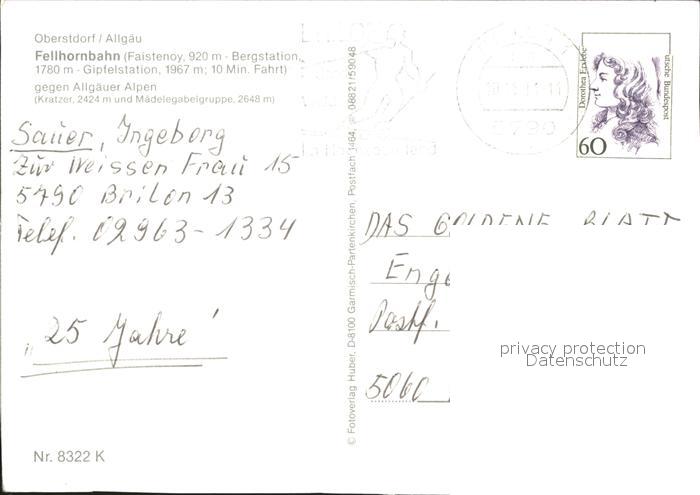 Oberstdorf / Allgäu
Fellhornbahn (Faistenoy, 920 m - Bergstation,
1780 m - Gipfelstation, 1967 m; 10 Min. Fahrt)
gegen Allgäuer Alpen
(Kratzer, 2424 m und Mädelegabelgruppe, 2648 m)
Sauer, Ingeborg
Zur Weissen Frau 15
5790 Brilon 13
Telef. 02963-1334
„25 Jahre'
Nr. 8322 K
© Fotoverlag Huber, D-8100 Garmisch-Partenkirchen, Postfach 1464, 08821/59048
5790
Dorothea Erxleben
Deutsche Bundespost
60
DAS GOLDENE BLATT
Enge
Postf.
5060
privacy protection
Datenschutz